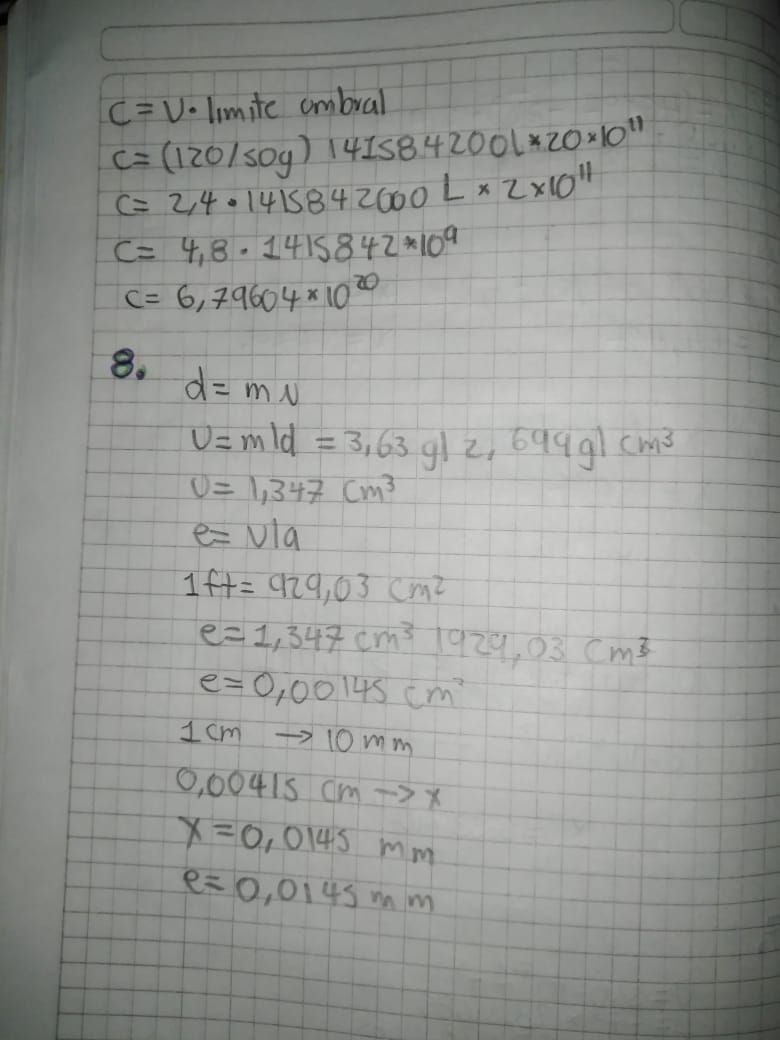 C = V • limite ombral
C = (120/50g) 1415842001*20*10¹¹
C = 2,4 • 1415842000 L * 2*10¹¹
C = 4,8 • 1415842*10⁹
C = 6,79604*10²⁰
8.
d = m/v
V = m/d = 3,63 g/2,699g/cm³
V = 1,347 cm³
e = V/a
1ft = 929,03 cm²
e = 1,347 cm³ /929,03 cm³
e = 0,00145 cm
1 cm → 10 mm
0,00415 cm → x
x = 0,0145 mm
e = 0,0145 mm